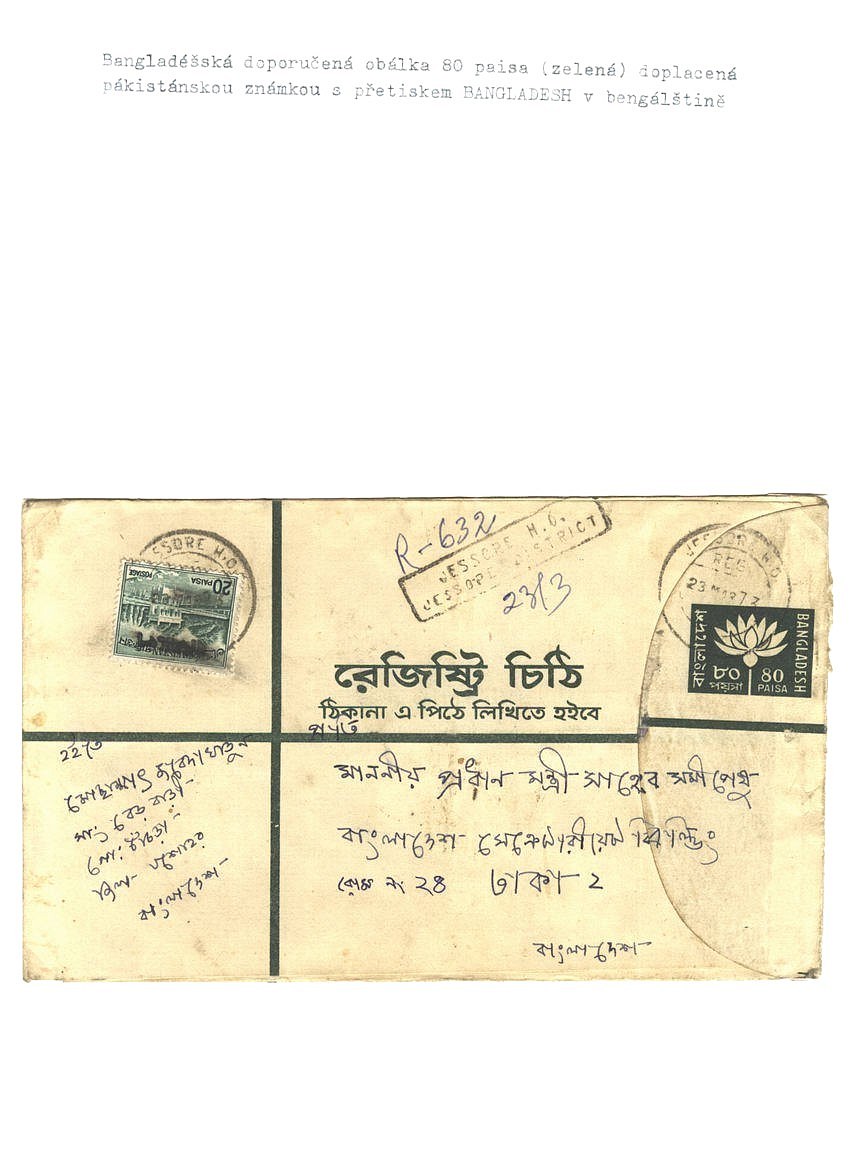 Bangladéšská doporučená obálka 80 paisa (zelená) doplacená
pákistánskou známkou s přetiskem BANGLADESH v bengálštině
JESSORE H.O.
20 PAISA
POSTAGE
R-632
JESSORE H.O.
JESSORE DISTRICT
23/3
JESSORE H.O
REG
23 MAR 73
বাংলাদেশ
BANGLADESH
৮০
পয়সা
80
PAISA
রেজিষ্ট্রি চিঠি
ঠিকানা এ পিঠে লিখিতে হইবে
প্রতি
মাননীয় প্রধান মন্ত্রী সাহেব সমীপেষু
বাংলাদেশ সেক্রেটারীয়েট বিল্ডিং
রোম নং ২৪ ঢাকা ২
বাংলাদেশ
যশোহর
বাংলাদেশ